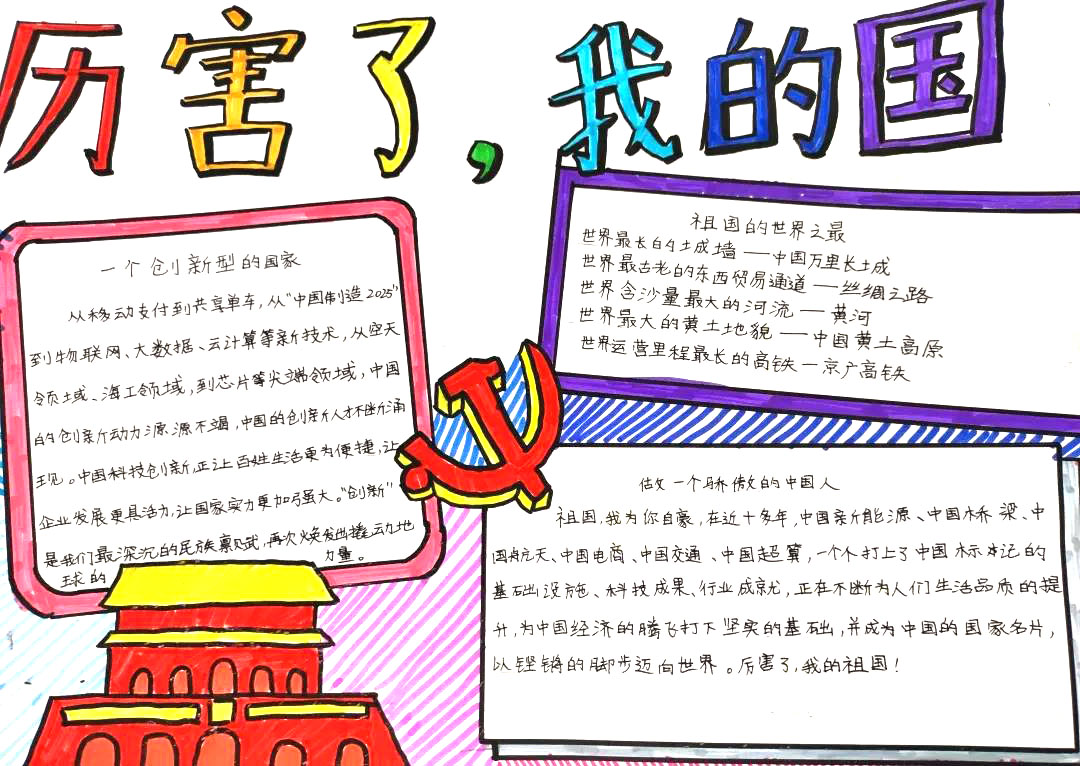 厉害了,我的国
一个创新型的国家
从移动支付到共享单车,从“中国制造2025”
到物联网、大数据、云计算等新技术,从空天
领域、海工领域,到芯片等尖端领域,中国
的创新动力源源不竭,中国的创新人才不断涌
现。中国科技创新,正让百姓生活更为便捷,让
企业发展更具活力,让国家实力更加强大。“创新”
是我们最深沉的民族禀赋,再次焕发出撬动地
球的力量。
祖国的世界之最
世界最长的土城墙——中国万里长城
世界最古老的东西贸易通道——丝绸之路
世界含沙量最大的河流——黄河
世界最大的黄土地貌——中国黄土高原
世界运营里程最长的高铁—京广高铁
做一个骄傲的中国人
祖国,我为你自豪,在近十多年,中国新能源、中国桥梁、中
国航天、中国电商、中国交通、中国超算,一个个打上了中国标记的
基础设施、科技成果、行业成就,正在不断为人们生活品质的提
升,为中国经济的腾飞打下坚实的基础,并成为中国的国家名片,
以铿锵的脚步迈向世界。厉害了,我的祖国!